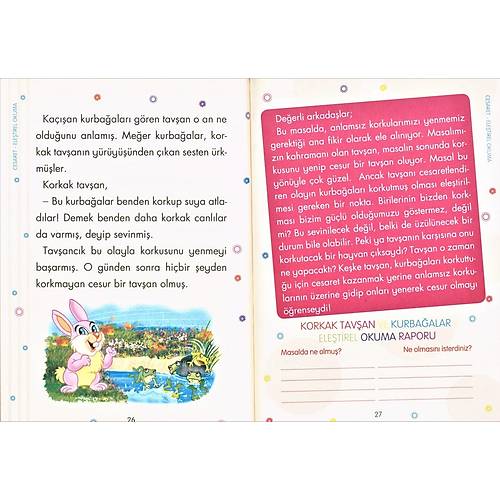 CESARET - ELEŞTİREL OKUMA
Kaçışan kurbağaları gören tavşan o an ne
olduğunu anlamış. Meğer kurbağalar, kor-
kak tavşanın yürüyüşünden çıkan sesten ürk-
müşler.
Korkak tavşan,
– Bu kurbağalar benden korkup suya atla-
dılar! Demek benden daha korkak canlılar
da varmış, deyip sevinmiş.
Tavşancık bu olayla korkusunu yenmeyi
başarmış. O günden sonra hiçbir şeyden
korkmayan cesur bir tavşan olmuş.
26
CESARET - ELEŞTİREL OKUMA
Değerli arkadaşlar;
Bu masalda, anlamsız korkularımızı yenmemiz
gerektiği ana fikir olarak ele alınıyor. Masalım-
zın kahramanı olan tavşan, masalın sonunda kor-
kusunu yenip cesur bir tavşan oluyor. Masal bu
yönüyle çok güzel. Ancak tavşanı cesaretlendi-
ren olayın kurbağaları korkutmuş olması eleştiril-
mesi gereken bir nokta. Birilerinin bizden kork-
ması bizim güçlü olduğumuzu göstermez, değil
mi? Bu sevinilecek değil, belki de üzülünecek bir
durum bile olabilir. Peki ya tavşanın karşısına onu
korkutacak bir hayvan çıksaydı? Tavşan o zaman
ne yapacaktı? Keşke tavşan, kurbağaları korkuttu-
ğu için cesaret kazanmak yerine anlamsız korku-
larının üzerine gidip onları yenerek cesur olmayı
öğrenseydi!
KORKAK TAVŞAN VE KURBAĞALAR
ELEŞTİREL OKUMA RAPORU
Masalda ne olmuş? Ne olmasını isterdiniz?
27